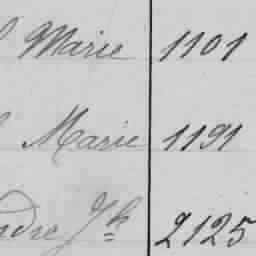 Marie 1101
Marie 1191
Jh 2125